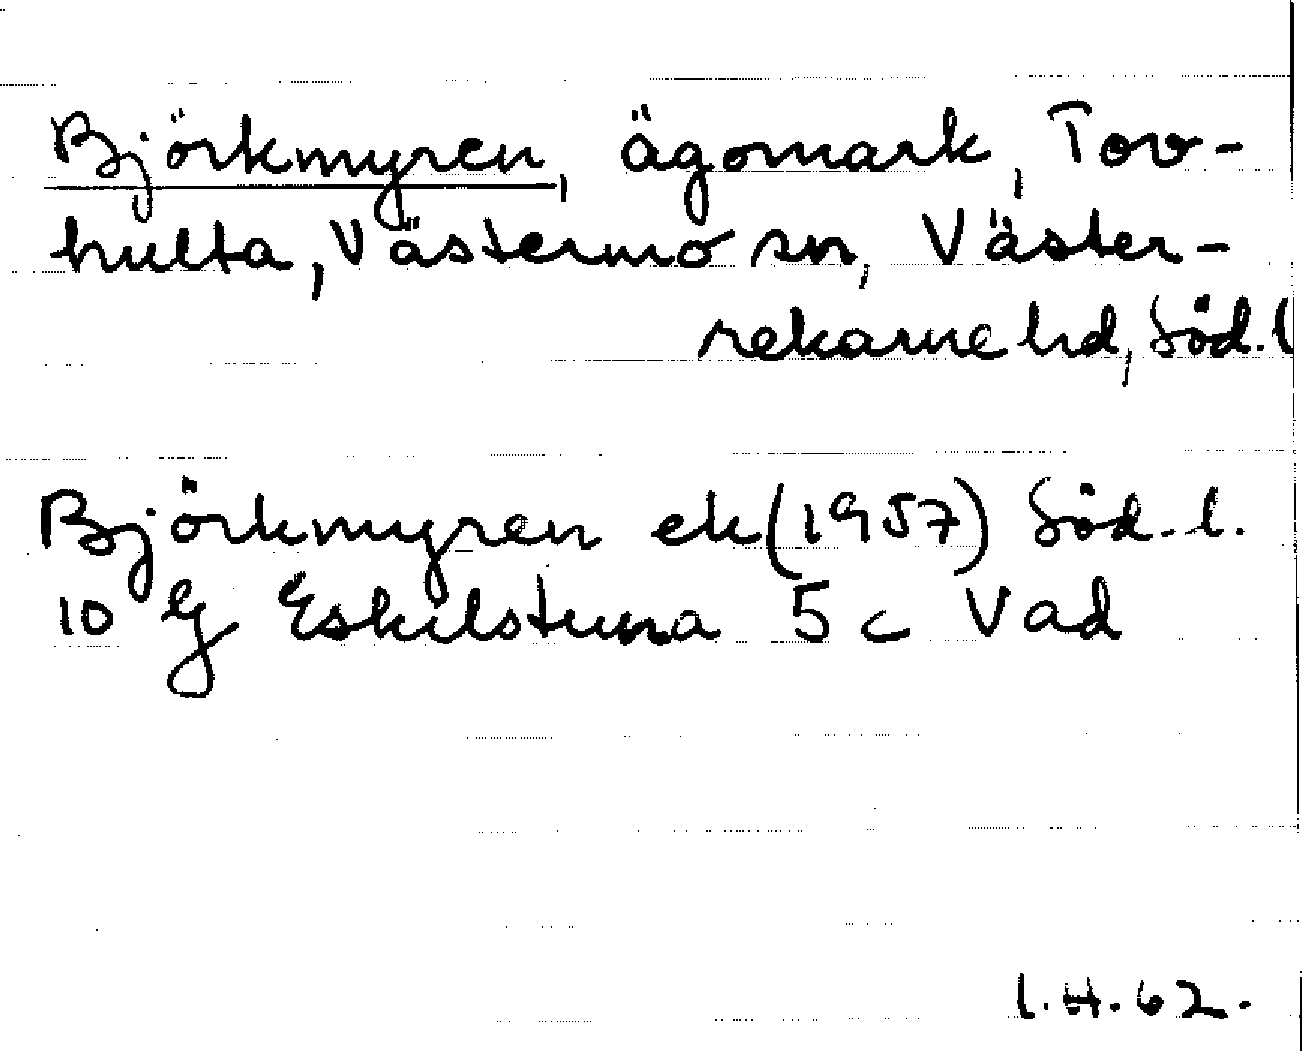 Björkmyren, ägomark, Tov-
hulta, Västermo sn, Väster-
rekarne hd, Söd. l
Björkmyren ek (1957) Söd. l.
10 G Eskilstuna 5 c Vad
I. H. 62.